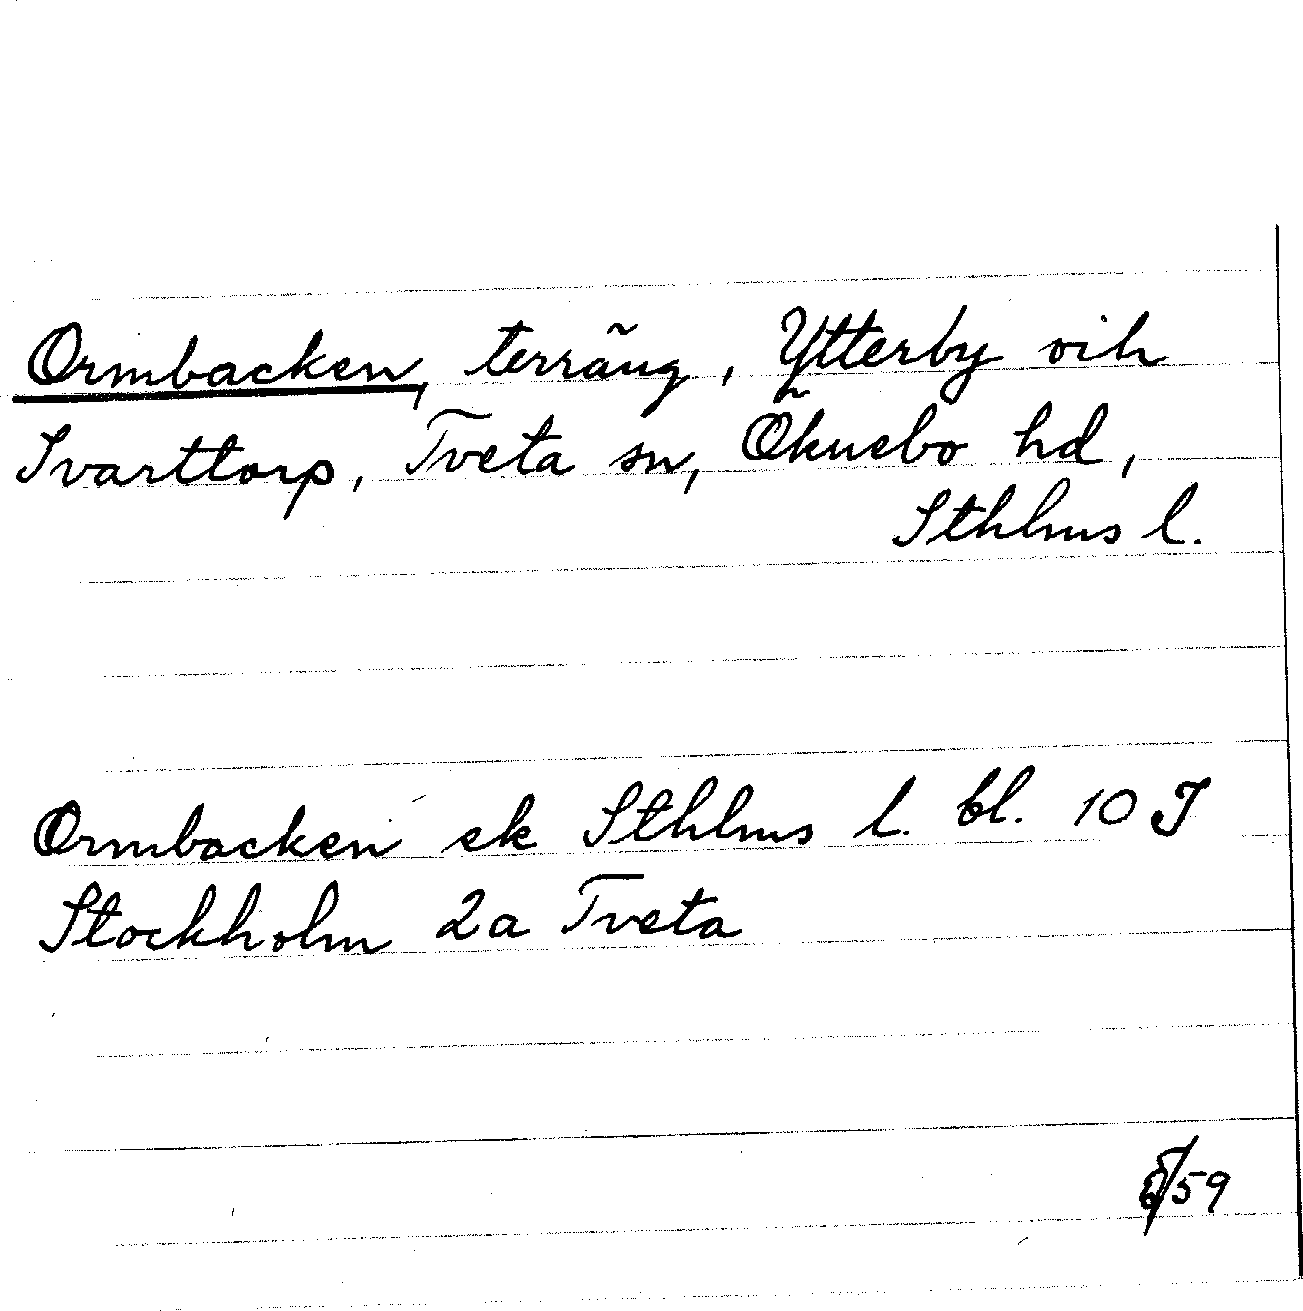 Ormbacken, terräng, Ytterby och
Svarttorp, Tveta sn, Öknebo hd,
Sthlms l.
Ormbacken ek Sthlms l. bl. 10 I
Stockholm 2a Tveta
/59